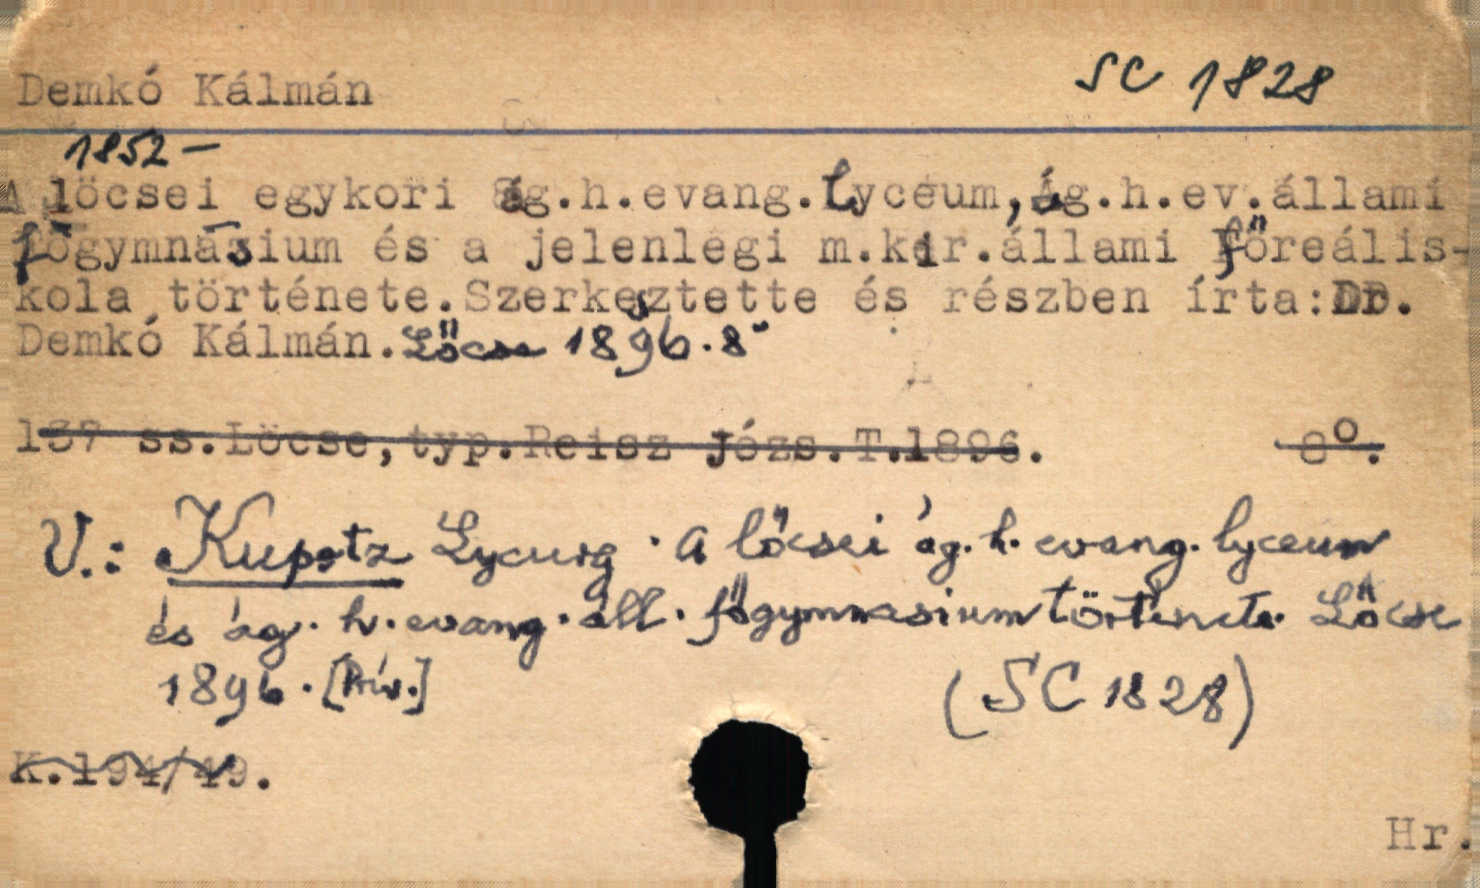 Demkó Kálmán SC 1828
1852-
A löcsei egykori ág.h.evang.Lyceum, ág.h.ev.állami
fögymnásium és a jelenlegi m.kir.állami főreális-
kola története.Szerkesztette és részben írta:Dr.
Demkó Kálmán. Lőcse 1896. 8°
137 ss.Löcse,typ.Reisz Józs.T.1896. 8°.
V.: Kupetz Lycurg. A lőcsei ág. h. evang. lyceum
és ág. h. evang. áll. főgymnasium története. Lőcse
1896. [Priv.] (SC 1828)
K.194/49.
Hr.